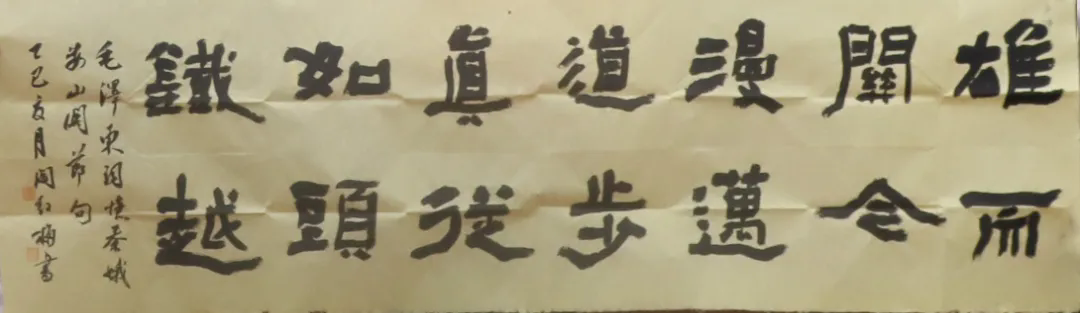 雄關漫道真如鐵
而今邁步從頭越
毛澤東詞憶秦娥
婁山関節句
乙巳夏月红梅書